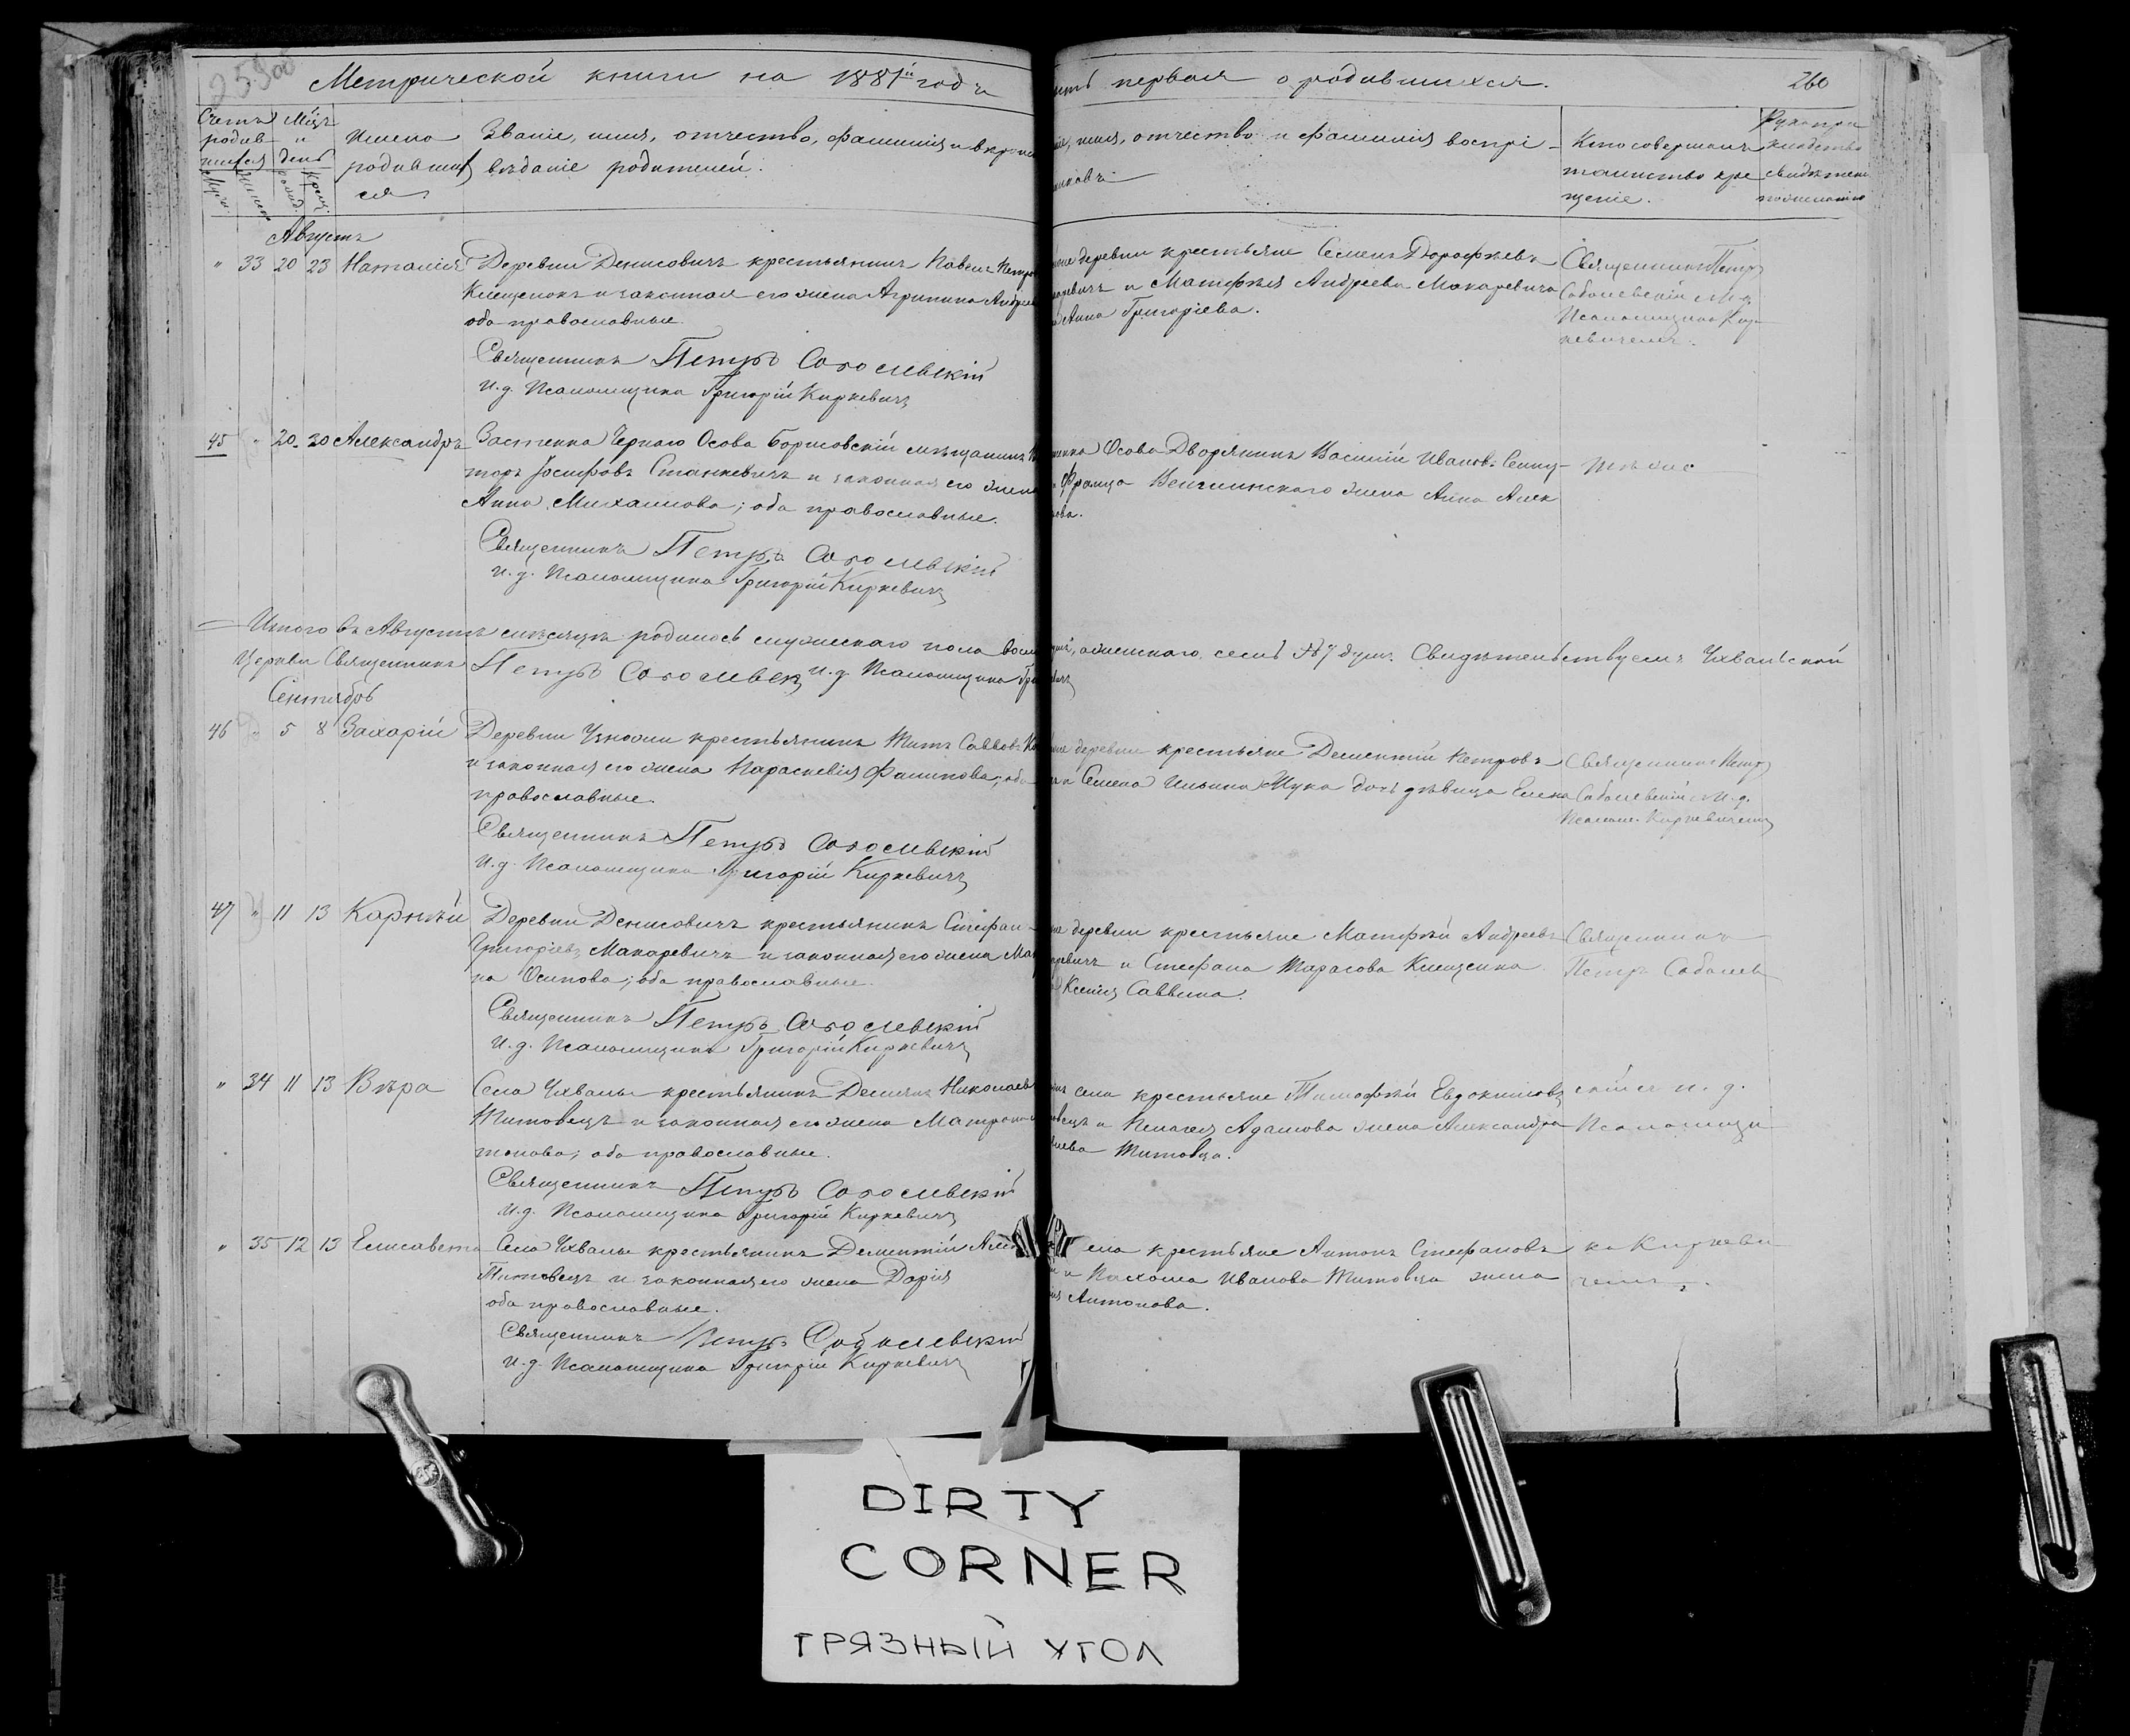 Метрической книги на 1881й годъ
первая о родившихся. 260
Счетъ родив
Мѣц и день
Имена родившихся
Званіе, имя, отчество, фамилія и вѣроис
вѣданіе родителей.
имя, отчество и фамилія воспрі-
Кто совершалъ таинство кре
щеніе.
Августъ
" 33 20 23 Наталія
Деревни Денисовичъ крестьянинъ Павелъ Петро
Клещенокъ и законная его жена Агрипина Андрее
оба православные.
Священникъ Петръ Соболевскій
И. д. Псаломщика Григорій Киркевичъ
деревни крестьяне Семенъ Дорофѣевъ
и Матфея Андреева Макаревича
Анна Григоріева.
Священникъ Петръ
Соболевскій съ И. д.
Псаломщика Кир
кевичемъ.
45 " 20 30 Александръ
Застенка Чернаго Осова Борисовскій мѣщанинъ
торъ Іосифовъ Станкевичъ и законная его жена
Анна Михаилова; оба православные.
Священникъ Петръ Соболевскій
И. д. Псаломщика Григорій Киркевичъ
Осова Дворянинъ Василій Ивановъ
Франца жена Анна Алек
Тѣ же
Итого въ Августѣ мѣсяцѣ родилось мужескаго пола
женскаго семь № 7 душъ. Свидѣтельствуемъ Ухвальской
Церкви Священникъ Петръ Соболевск И. д. Псаломщика
Сентябрь
46 " 5 8 Захарій
Деревни крестьянинъ Титъ Саввовъ
и законная его жена Параскевія Филипова; оба
православные.
Священникъ Петръ Соболевскій
И. д. Псаломщика Григорій Киркевичъ
деревни крестьяне Дементій Петровъ
и Семена Ильина Мука дочь дѣвица Елена
Священникъ Петръ
Соболевскій съ И. д.
Псалом. Киркевичемъ
47 " 11 13 Карнѣй
Деревни Денисовичъ крестьянинъ Стефан
Григоріевъ Макаревичъ и законная его жена Ма
на Осипова; оба православные.
Священникъ Петръ Соболевскій
И. д. Псаломщика Григорій Киркевичъ
деревни крестьяне Матфѣй Андреевъ
и Стефана Тарасова Клещенка
Ксенія Саввина.
Священникъ
Петръ Соболев
" 34 11 13 Вѣра
Села Ухвалы крестьянинъ Демьянъ Николаев
Титовецъ и законная его жена Матрона
тонова; оба православные.
Священникъ Петръ Соболевскій
И. д. Псаломщика Григорій Киркевичъ
села крестьяне Тимофѣй Евдокимовъ
и Пелагея Адамова жена Александра
Титовца.
скій съ и. д.
Псаломщи
" 35 12 13 Елисавета
Села Ухвалы крестьянинъ Дементій Але
Титовецъ и законная его жена Дарія
оба православные.
Священникъ Петръ Соболевскій
И. д. Псаломщика Григорій Киркевичъ
села крестьяне Антонъ Стефановъ
и Пахома Иванова Титовца жена
Антонова.
ка Киркеви
чемъ.
DIRTY
CORNER
ГРЯЗНЫЙ УГОЛ